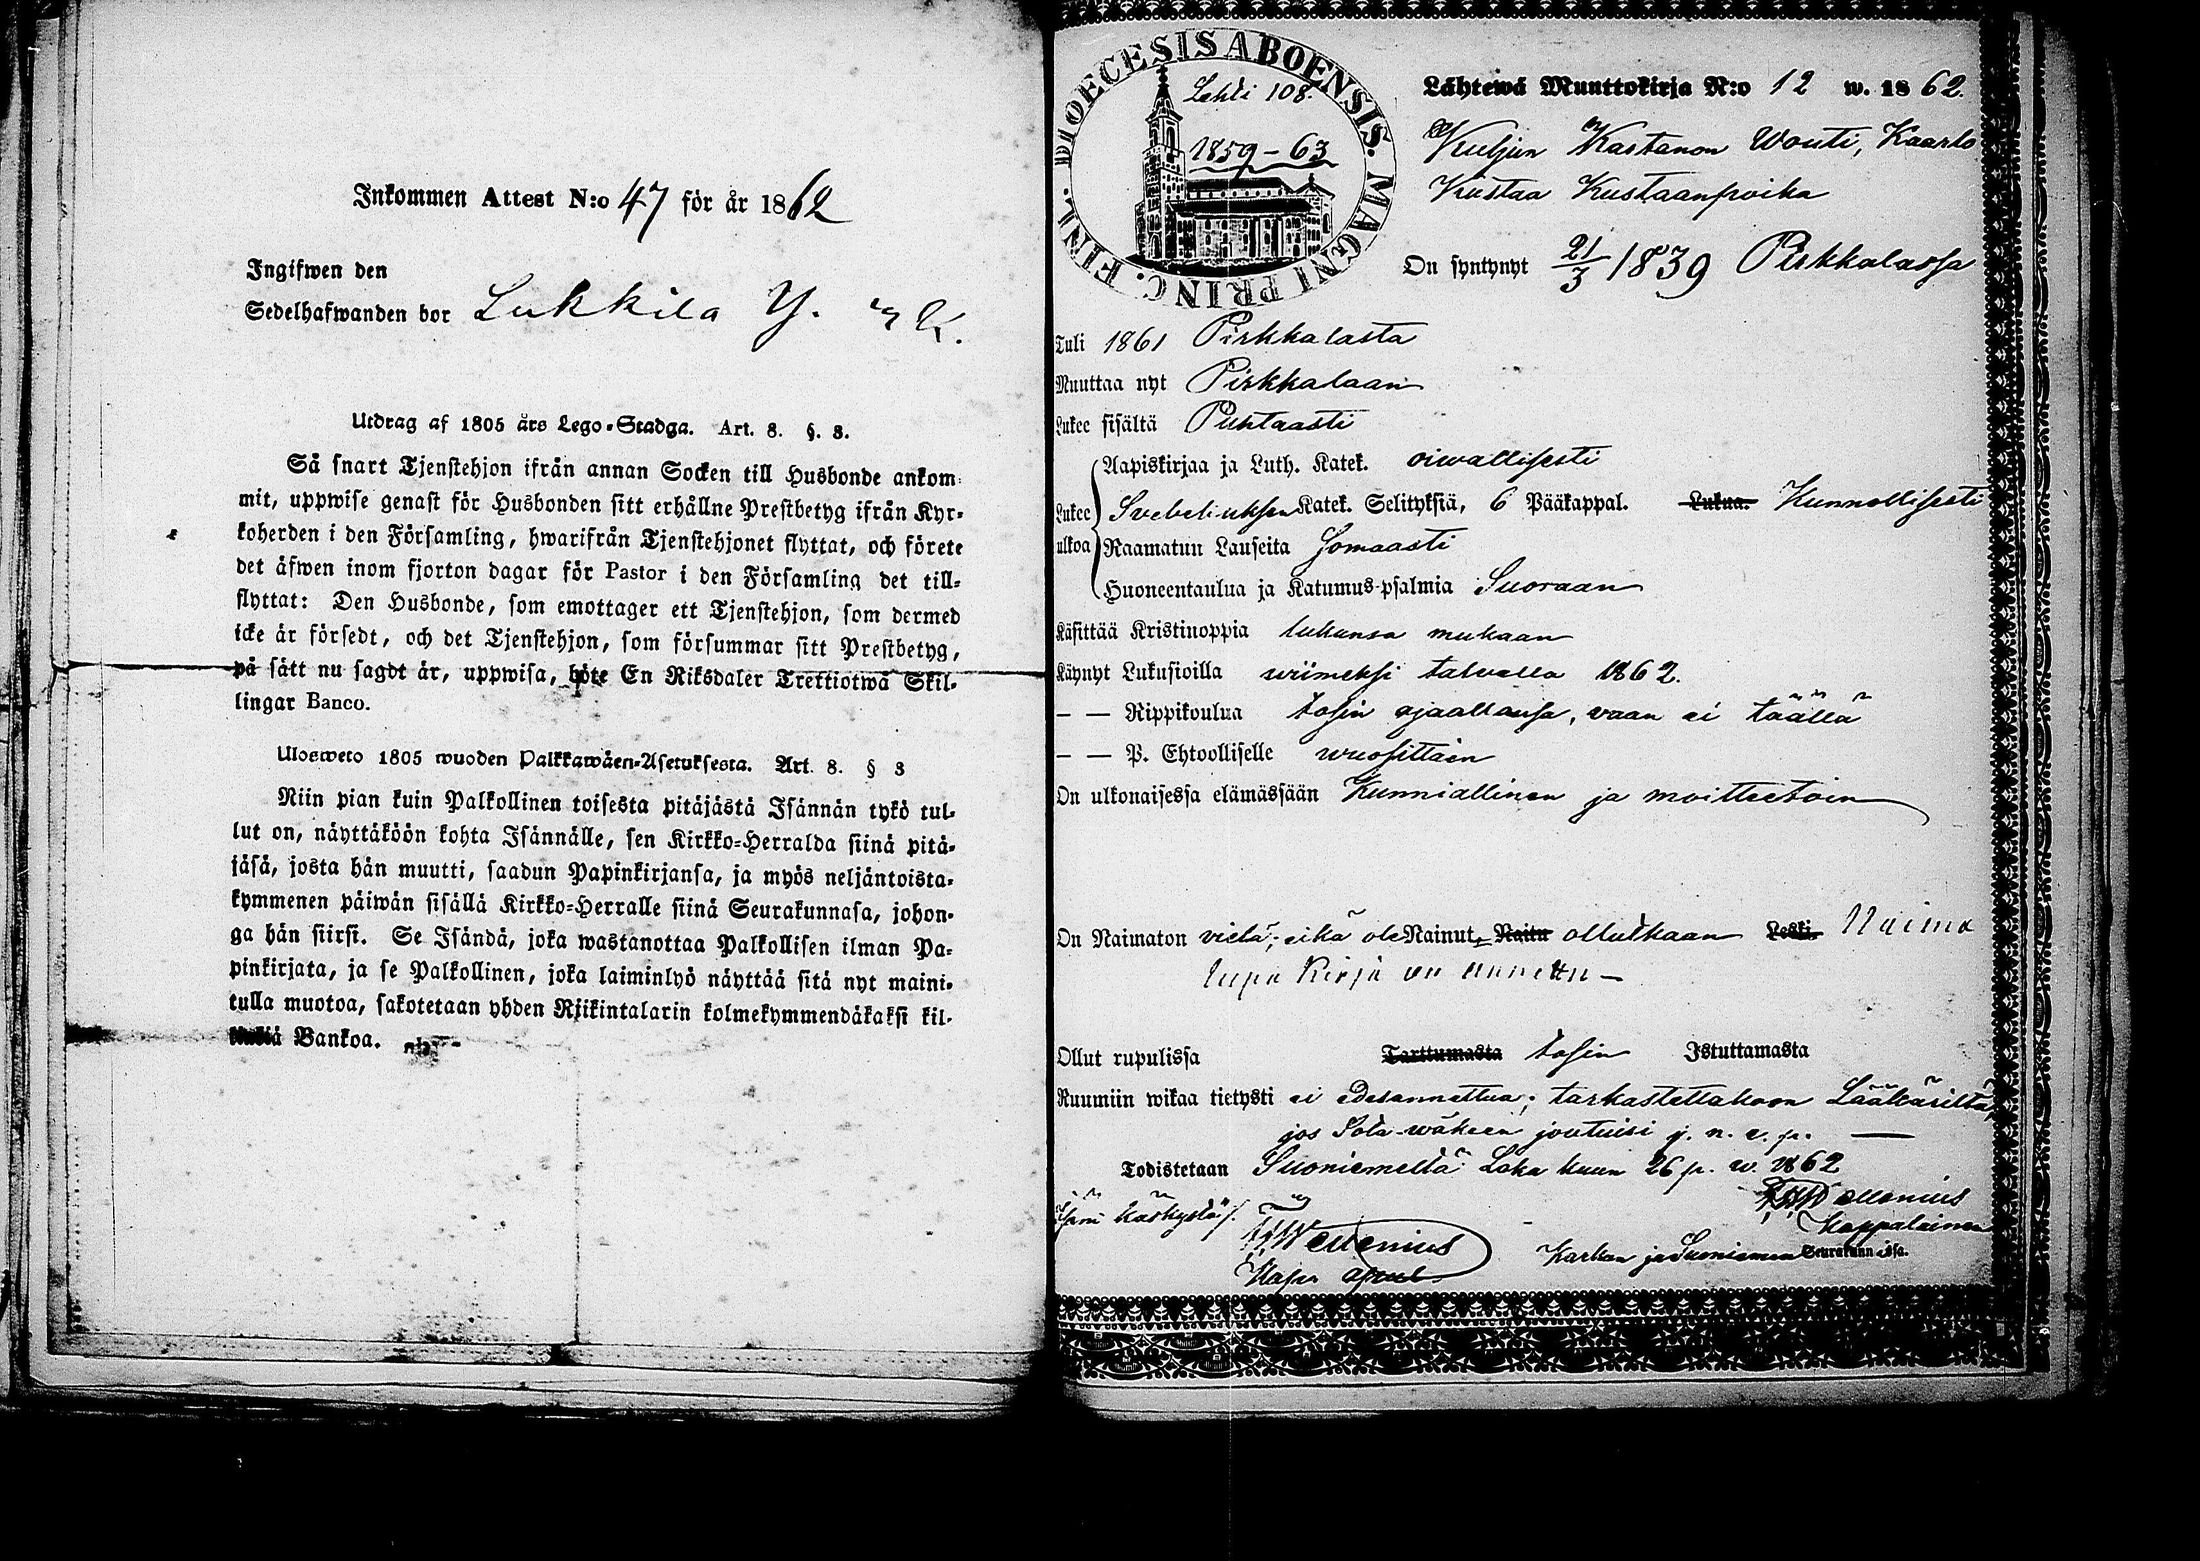 Inkommen Attest N:o 47 för år 1862
Ingifwen den
Sedelhafwanden bor Lukkila Y.
Utdrag af 1805 års Lego-Stadga. Art. 8. §. 8.
Så snart Tjenstehjon ifrån annan Socken till Husbonde ankom-
mit, uppwise genast för Husbonden sitt erhållne Prestbetyg ifrån Kyr-
koherden i den Församling, hwarifrån Tjenstehjonet flyttat, och förete
det äfwen inom fjorton dagar för Pastor i den Församling det till-
flyttat: Den Husbonde, som emottager ett Tjenstehjon, som dermed
icke är försedt, och det Tjenstehjon, som försummar sitt Prestbetyg,
på sätt nu sagdt är, uppwisa, böte En Riksdaler Trettiotwå Skil-
lingar Banco.
Ulosweto 1805 wuoden Palkkawäen-Asetuksesta. Art. 8. § 8
Niin pian kuin Palkollinen toisesta pitäjästä Isännän tykö tul-
lut on, näyttäköön kohta Isännälle, sen Kirkko-Herralda siinä pitä-
jäsä, josta hän muutti, saadun Papinkirjansa, ja myös neljäntoista-
kymmenen päiwän sisällä Kirkko-Herralle siinä Seurakunnasa, johon-
ga hän siirsi. Se Isändä, joka wastanottaa Palkollisen ilman Pa-
pinkirjata, ja se Palkollinen, joka laiminlyö näyttää sitä nyt maini-
tulla muotoa, sakotetaan yhden Riikintalarin kolmekymmendäkaksi kil-
Bankoa.
DIOECESIS ABOENSIS. MAGNI PRINC. FINL.
Lehti 108.
1859-63
Lähtewä Muuttokirja N:o 12 w. 1862.
Kuljun Kartanon Wouti, Kaarlo
Kustaa Kustaanpoika
On syntynyt 21/3 1839 Pirkkalassa
Tuli 1861 Pirkkalasta
Muuttaa nyt Pirkkalaan
Lukee sisältä Puhtaasti
Lukee ulkoa
Aapiskirjaa ja Luth. Katek. oiwallisesti
Svebeliuksen Katek. Selityksiä, 6 Pääkappal. Lukua. Kunnollisesti
Raamatun Lauseita Somaasti
Huoneentaulua ja Katumus-psalmia Suoraan
Käsittää Kristinoppia lukunsa mukaan
Käynyt Lukusioilla wiimeksi talvella 1862.
— — Rippikoulua tosin ajaallansa, vaan ei täällä
— — P. Ehtoolliselle wuosittain
On ulkonaisessa elämässään Kunniallinen ja moitteetoin
On Naimaton vielä, eikä ole Nainut, Naitu ollutkaan Leski. Naima
lupa kirja on annettu —
Ollut rupulissa Tarttumasta tosin Istuttamasta
Ruumiin wikaa tietysti ei edesannettua; tarkastettakoon Lääkäriltä,
jos Sota-wäkeen joutuisi j. n. e. p. —
Todistetaan Suoniemellä Loka kuun 26 p. w. 1862
Kappalainen
Karkun ja Suoniemen Seurakunnissa.